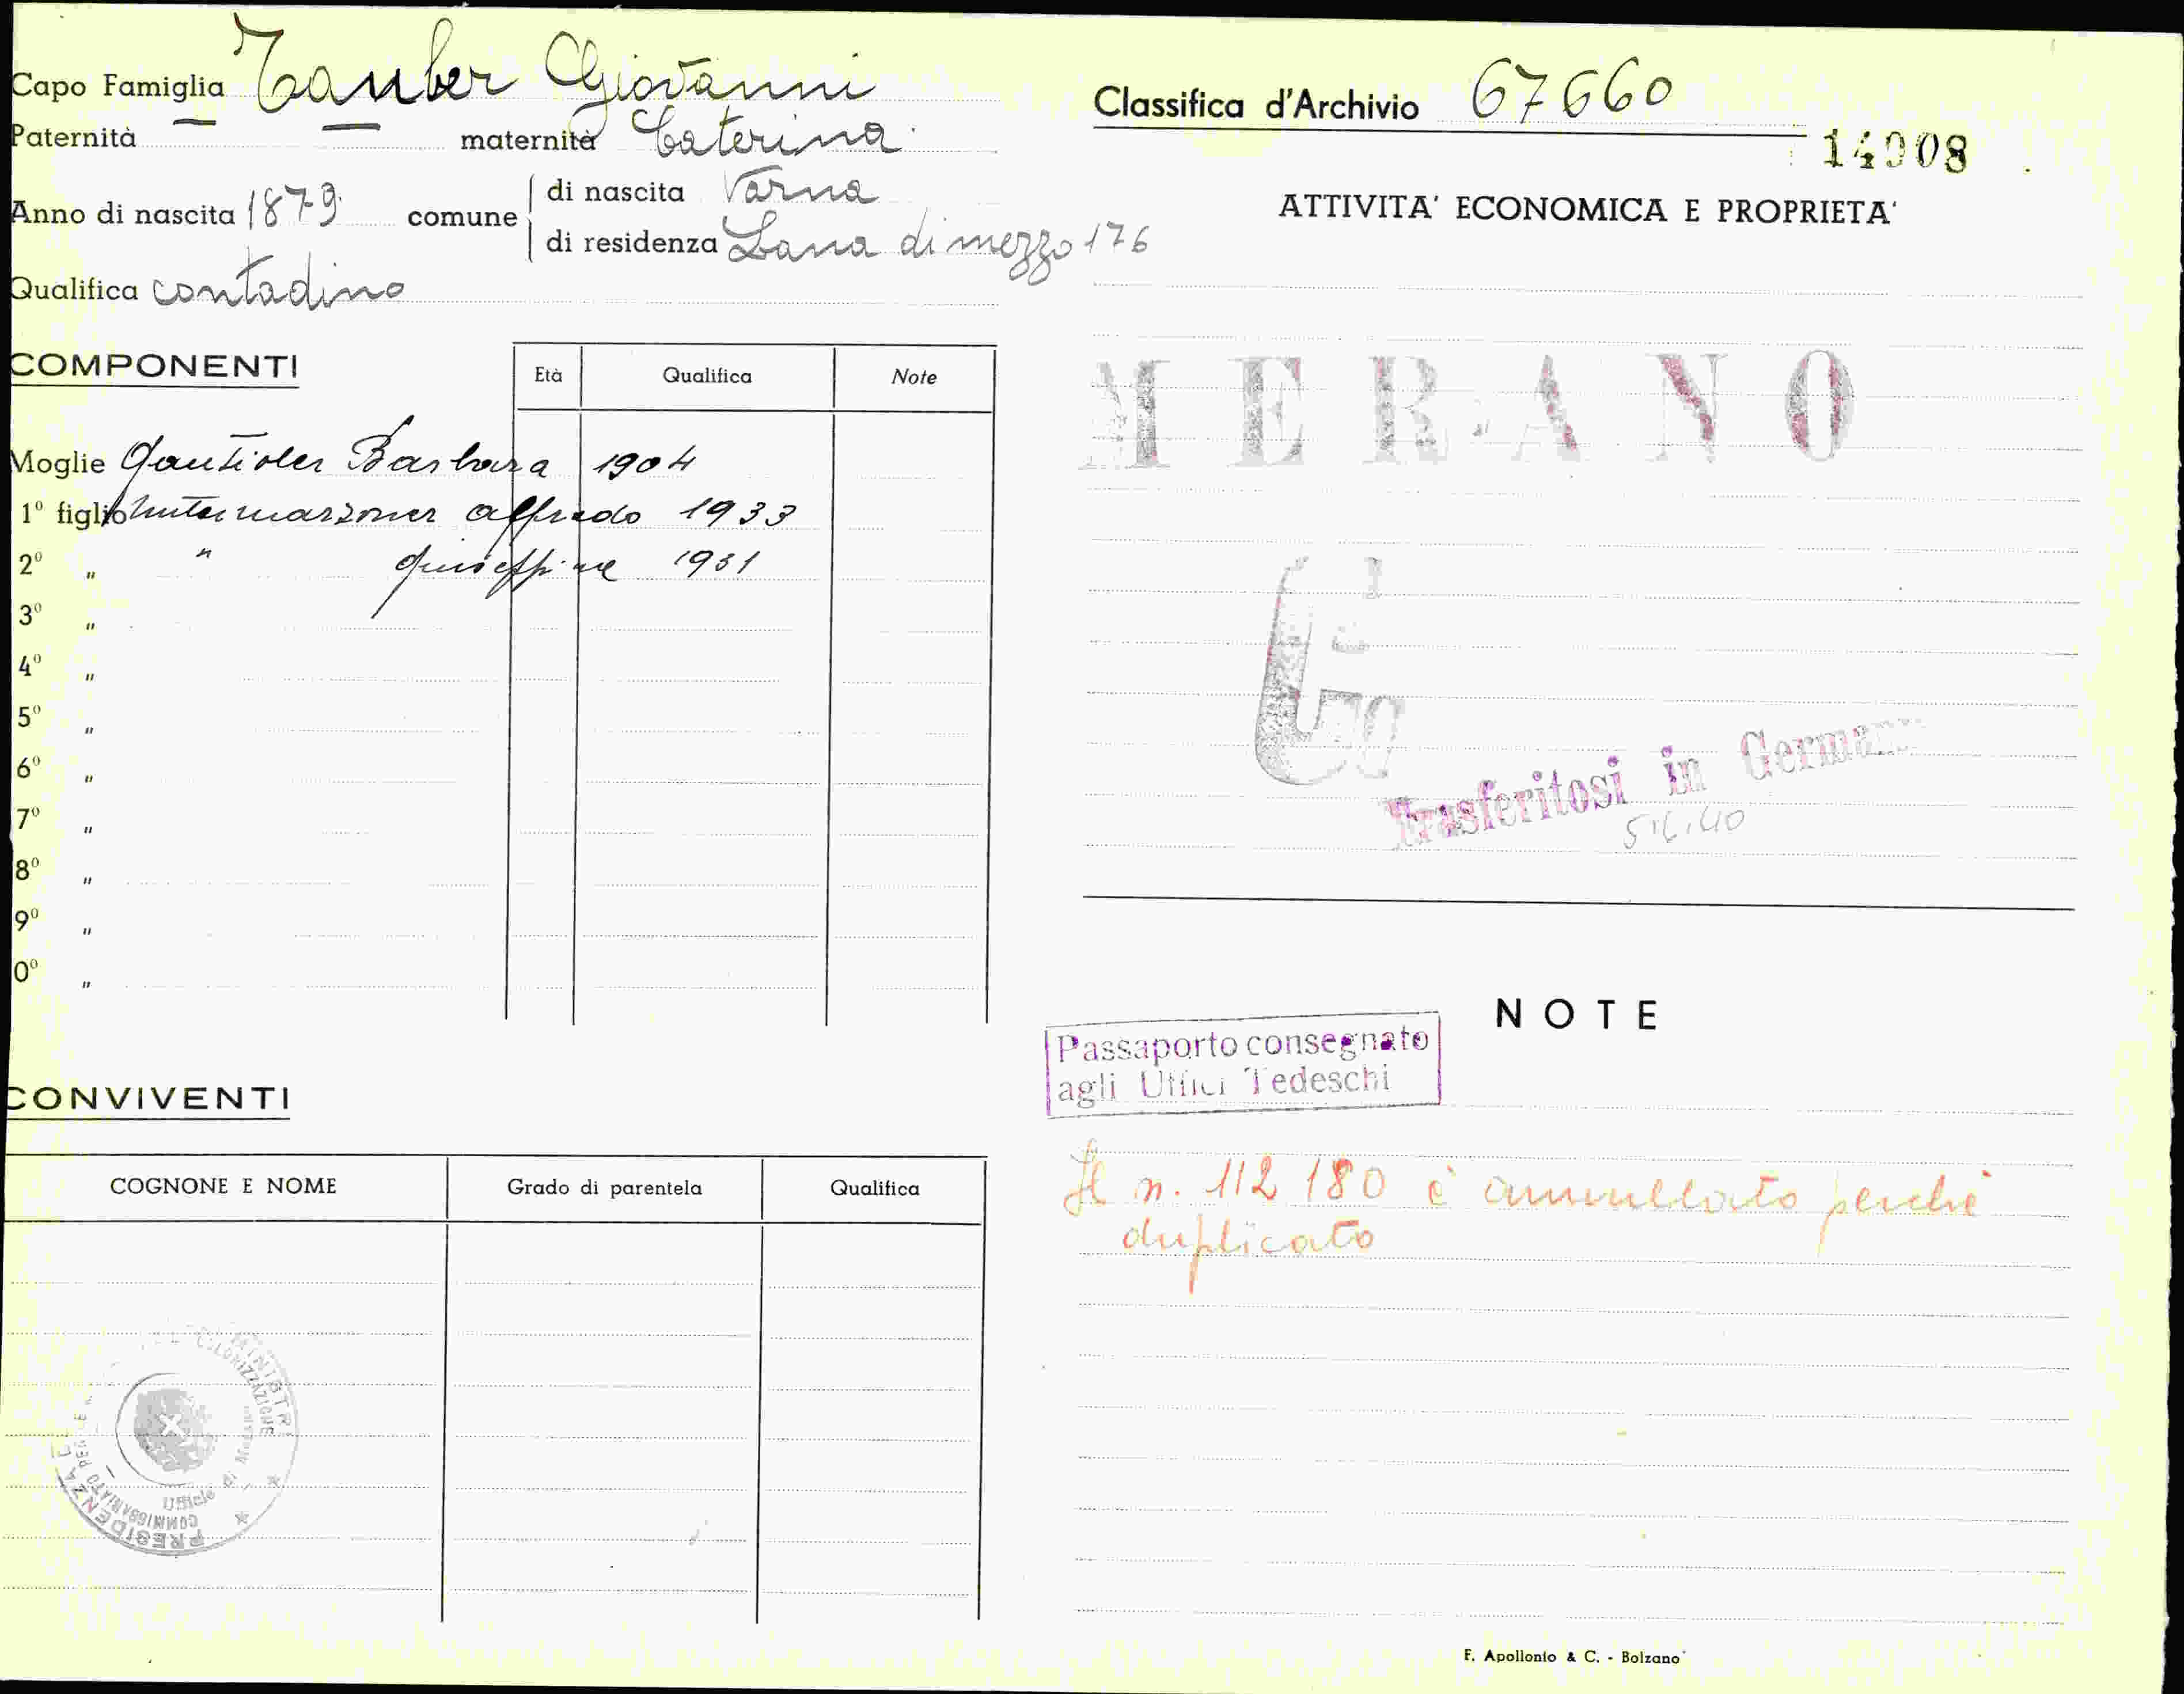 Capo Famiglia Tauber Giovanni
Paternità — maternità Caterina
Anno di nascita 1879 comune
di nascita Varna
di residenza Lana di mezzo 176
Qualifica contadino
COMPONENTI
Età Qualifica Note
Moglie Barbara 1904
1° figlio alfredo 1933
2° „ " Giuseppina 1931
3° „
4° „
5° „
6° „
7° „
8° „
9° „
0° „
CONVIVENTI
COGNONE E NOME Grado di parentela Qualifica
PRESIDENZA MINISTR
COMMISSARIATO COLONIZZAZIONE
Ufficio di
Classifica d'Archivio 67660
14908
ATTIVITA' ECONOMICA E PROPRIETA'
MERANO
Trasferitosi in German
NOTE
Passaporto consegnato
agli Uffici Tedeschi
Il n. 112 180 è annullato perchè
duplicato
F. Apollonio & C. - Bolzano